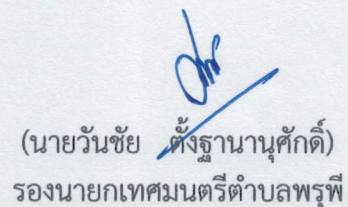 (นายวันชัย ตั้งฐานานุศักดิ์)
รองนายกเทศมนตรีตำบลพรุพี